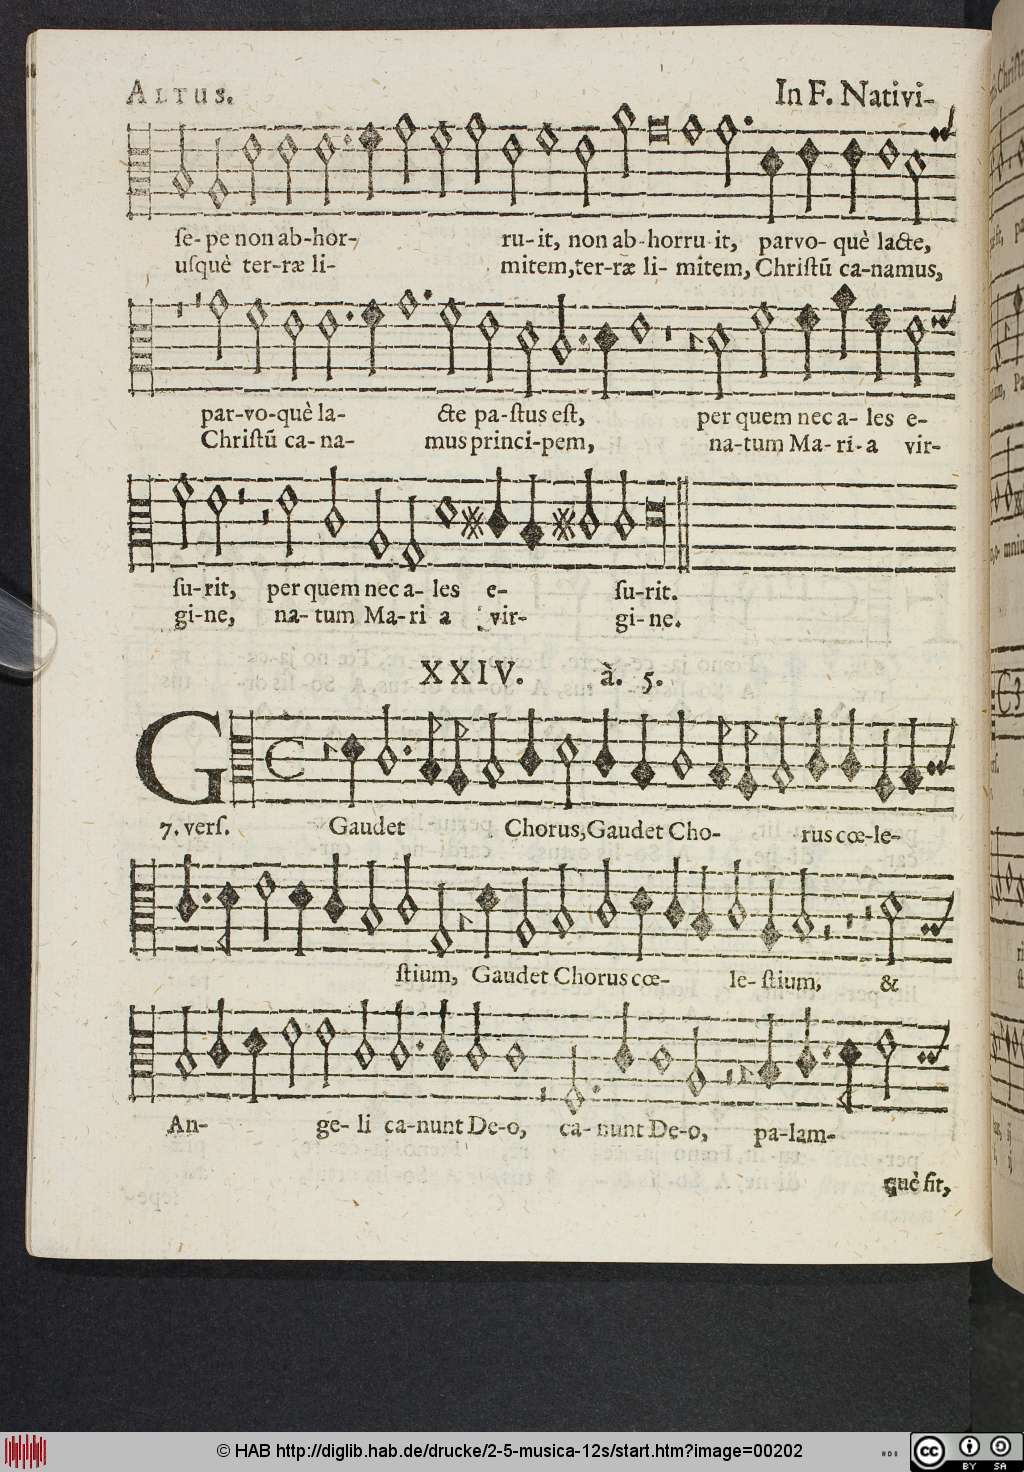 ALTUS. In F. Nativi-
ſe- pe non ab-hor- ru-it, non ab-horru it, parvo- què lacte,
uſquè ter-ræ li- mitem,ter-ræ li- mitem, Chriſtũ ca-namus,
par-vo-què la- cte pa-ſtus eſt, per quem nec a- les e-
Chriſtũ ca- na- mus princi-pem, na-tum Ma-ri-a vir-
ſu-rit, per quem nec a- les e- ſu-rit.
gi-ne, na-tum Ma-ri a vir- gi-ne.
XXIV. à. 5.
G
7. verſ. Gaudet Chorus, Gaudet Cho- rus cœ-le-
ſtium, Gaudet Chorus cœ- le-ſtium, &
An- ge-li ca-nunt De-o, ca-nunt De-o, pa-lam-
què fit,
© HAB http://diglib.hab.de/drucke/2-5-musica-12s/start.htm?image=00202
cc BY SA